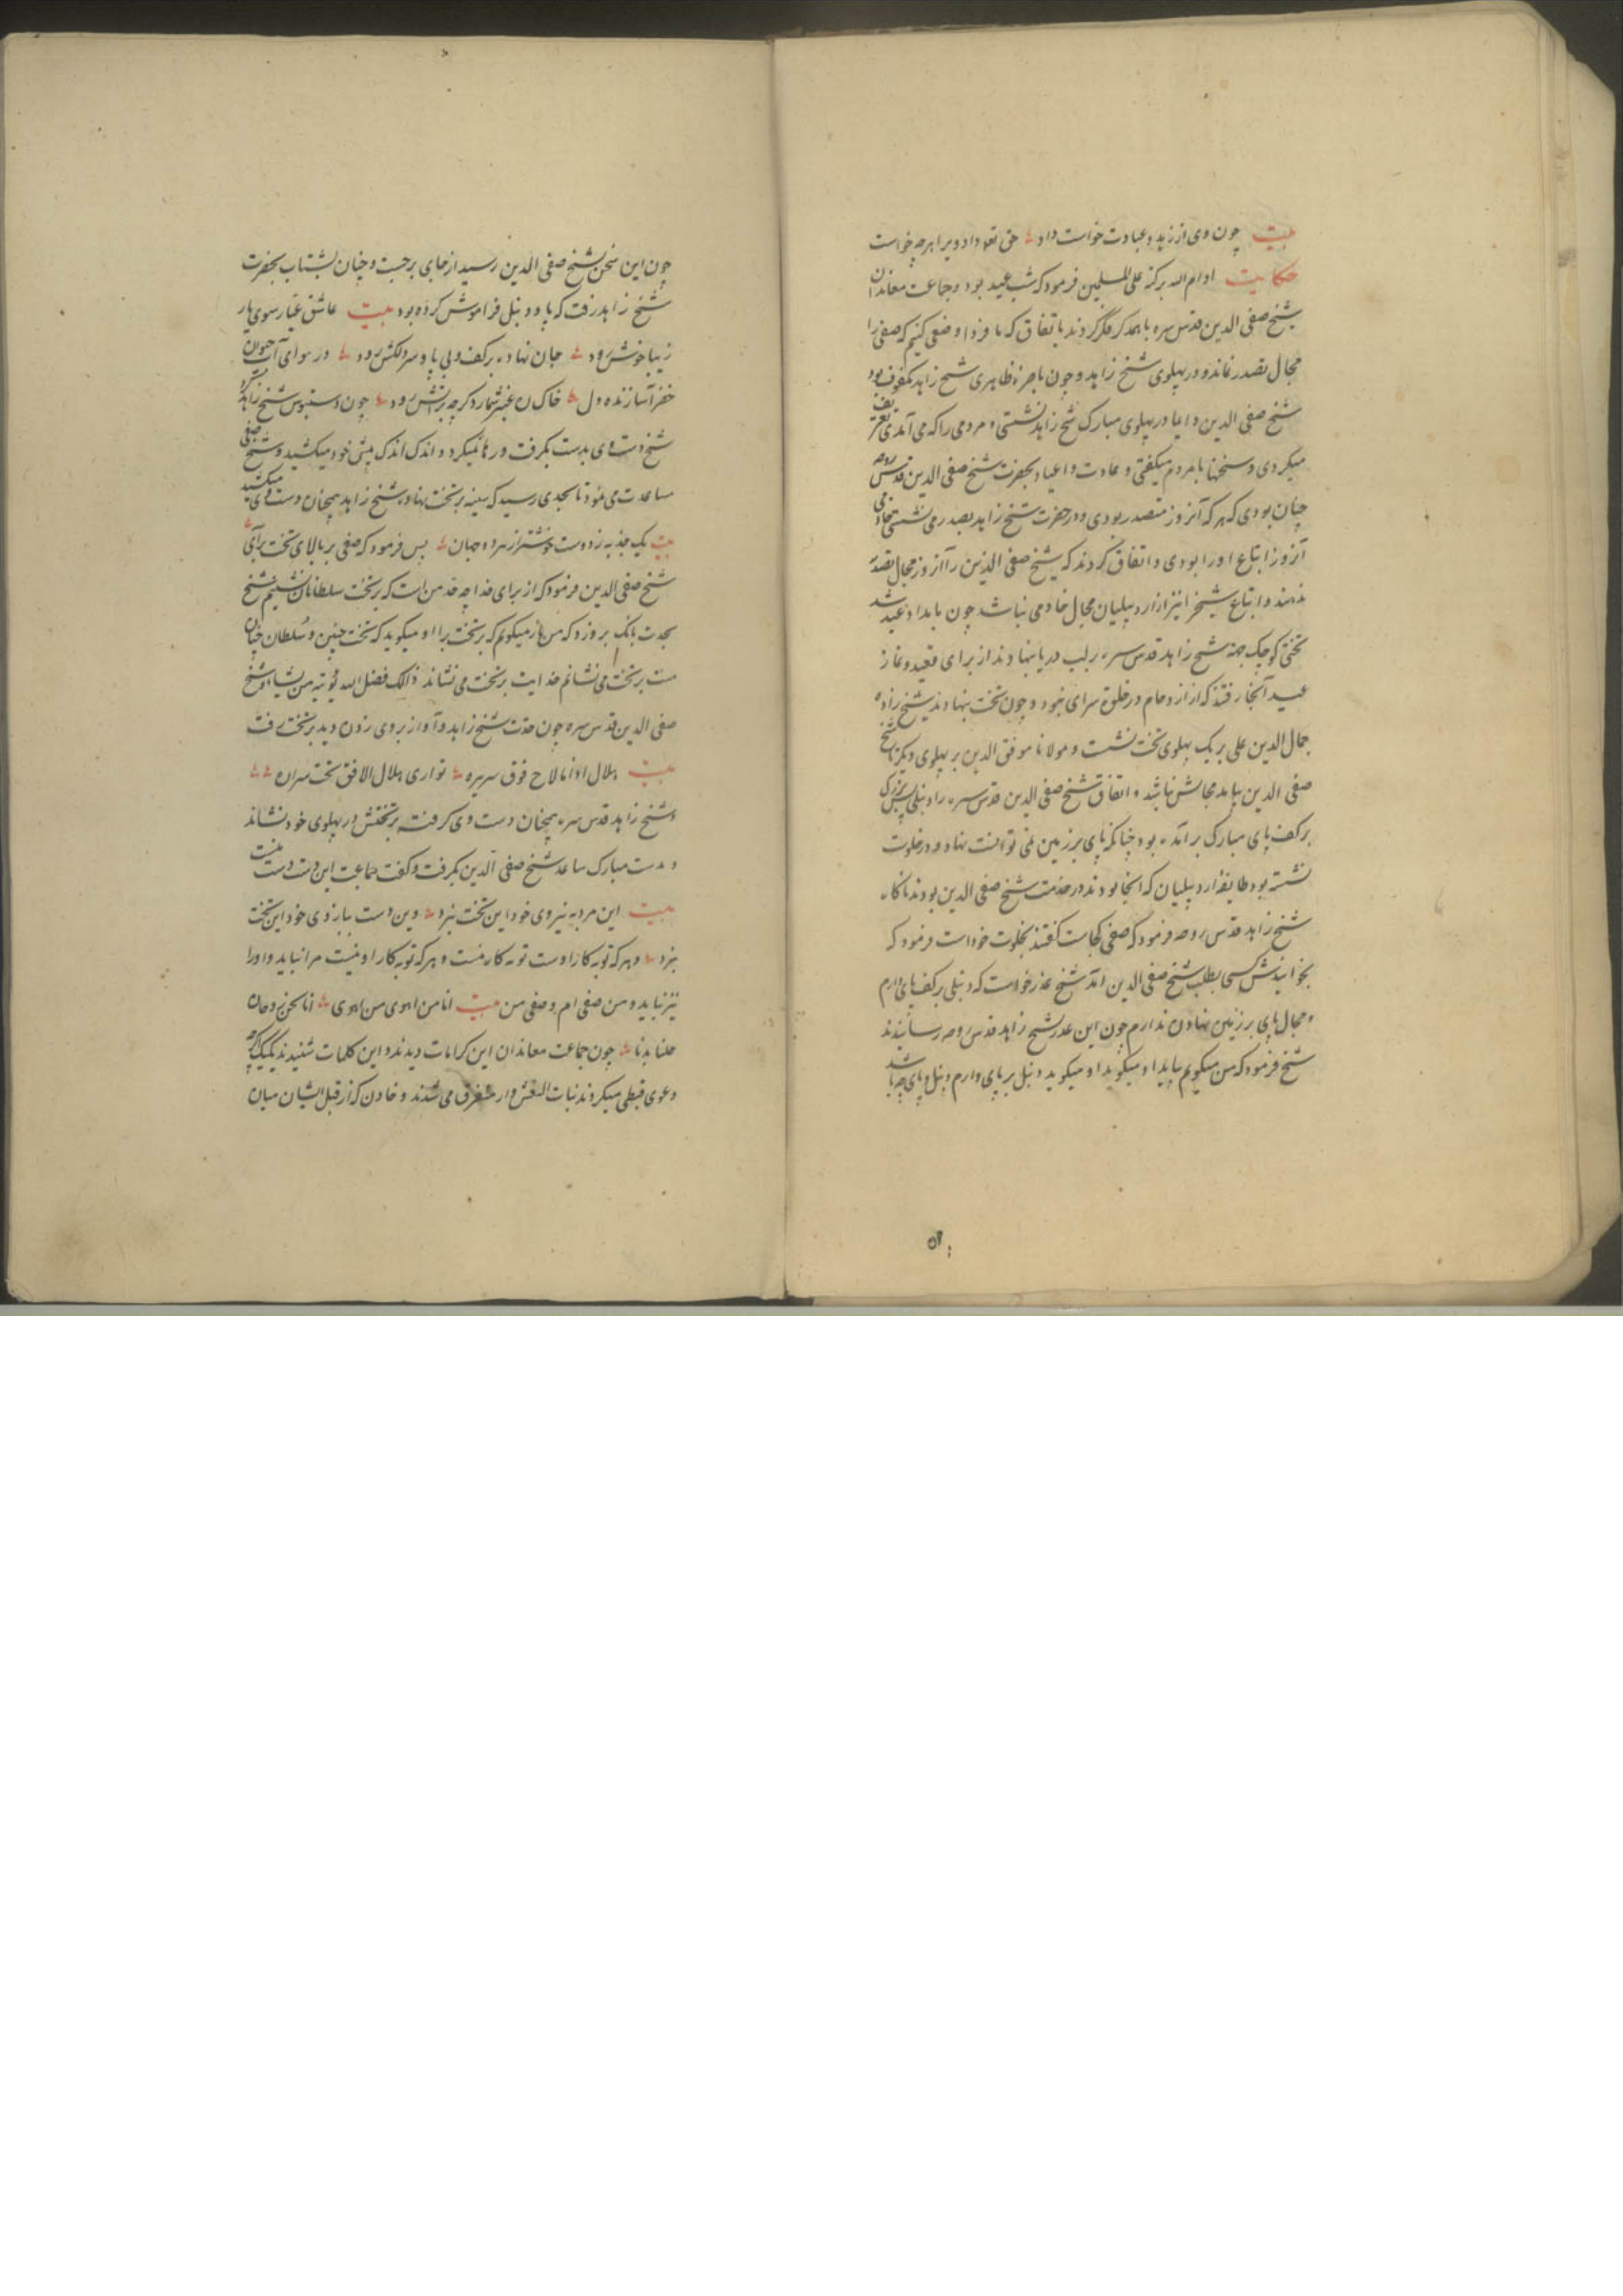 بیت چون وی از زهد و عبادت خواست داد حق تعالی داد ویرا هر چه خواست
حکایت ادام الله برکته علی المسلمین فرمود که شب عید بود و جماعت معاندان
شیخ صفی الدین قدس سره با همدکر فکر کردند باتفاق که ما فردا وضعی کنیم که صفی را
مجال تصدر نماند و در پهلوی شیخ زاهد و چون باصرهٔ ظاهری شیخ زاهد مکفوف بود
شیخ صفی الدین دایما در پهلوی مبارک شیخ زاهد نشستی و مردمی را که می آمدندی تعریف
میکردی و سخنها با مردم میکفتی و عادت و اعیاد بحضرت شیخ صفی الدین قدس روحه
چنان بودی که هر که آنروز متصدر بودی و در حضرت شیخ زاهد بصدر می نشستی خادمی
آنروز اتباع او را بودی و اتفاق کردند که شیخ صفی الدین را آنروز مجال تصدر
ندهند و اتباع شیخ را نیز از اردبیلیان مجال خادمی نباشد چون بامداد عید شد
تختی کوچک جهة شیخ زاهد قدس سره برلب دریا نهادند از برای تعید و نماز
عید آنجا رفتند که از ازدحام در خلوة سرای نبود و چون تخت بنهادند شیخ زاده
جمال الدین علی بر یک پهلوی تخت نشست و مولانا موفق الدین بر پهلوی دیکر تا شیخ
صفی الدین بیاید مجالش نباشد و اتفاق شیخ صفی الدین قدس سره را دنبلی بزرک
برکف پای مبارک برآمده بود چنانکه پای برزمین نمی توانست نهاد و در خلوت
نشسته بود طایفهٔ اردبیلیان که آنجا بودند در خدمت شیخ صفی الدین بودند ناکاه
شیخ زاهد قدس روحه فرمود که صفی کجاست کفتند بخلوت خود است فرمود که
بخوانیدش کسی بطلب شیخ صفی الدین آمد شیخ عذر خواست که دنبلی برکف پای دارم
و مجال پای برزمین نهادن ندارم چون این عذر شیخ زاهد قدس روحه رسانیدند
شیخ فرمود که من میکویم بیاید او میکوید او میکوید دنبل بر پای دارم دنبل و پای چه باشد
چون این سخن بشیخ صفی الدین رسید از جای برجست و چنان بشتاب بحضرت
شیخ زاهد رفت که پا و دنبل فراموش کرده بود بیت عاشق عیار سوی یار
زیبا خوش رود جان نهاده برکف و بی پا و سر دلکش رود در هوای آب حیوان
خضر آسا زنده دل خاک ره عنبر شمارد کرچه بر آتش رود چون دستبوس شیخ زاهد کرد
شیخ دست وی بدست بکرفت و رها نمیکرد و اندک اندک پیش خود میکشید و شیخ صفی
مساعدت می نمود تا بحدی رسید که سینه برتخت نهاد و شیخ زاهد همچنان دست وی میکشید
بیت یک جذبه ز دوست خوشتر از هر دو جهان پس فرمود که صفی بر بالای تخت برآی
شیخ صفی الدین فرمود که از برای خدا چه حد من است که برتخت سلطانان نشینم شیخ
بحدت بانک بر وی زد که من میکویم که برتخت برا او میکوید که تخت چنین و سلطان چنان
منت برتخت می نشانم خدایت برتخت می نشاند ذالک فضل الله یؤتیه من یشاء و شیخ
صفی الدین قدس سره چون حدت شیخ زاهد و آواز بر وی زدن دید برتخت رفت
بیت هلال اذا ما لاح فوق سریره تواری هلال الافق تحت سراره
و شیخ زاهد قدس سره همچنان دست وی کرفته برتختش در پهلوی خود نشاند
و بدست مبارک ساعد شیخ صفی الدین بکرفت و کفت جماعت این دست دست منست
بیت این مرد به نیروی خود این تخت نبرد وین دست ببازوی خود این تخت
نبرد و هر که توبه کار اوست توبه کار منست و هر که توبه کار او نیست مرا نباید و او را
نیز نباید و من صفی ام و صفی من بیت انا من اهوی من اهوی انا نحن روحان
حللنا بدنا چون جماعت معاندان این کرامات دیدند و این کلمات شنیدند یکیک کرچه
دعوی قبطی میکردند بنات النعش وار متفرق می شدند و خادن که از قبل ایشان میان